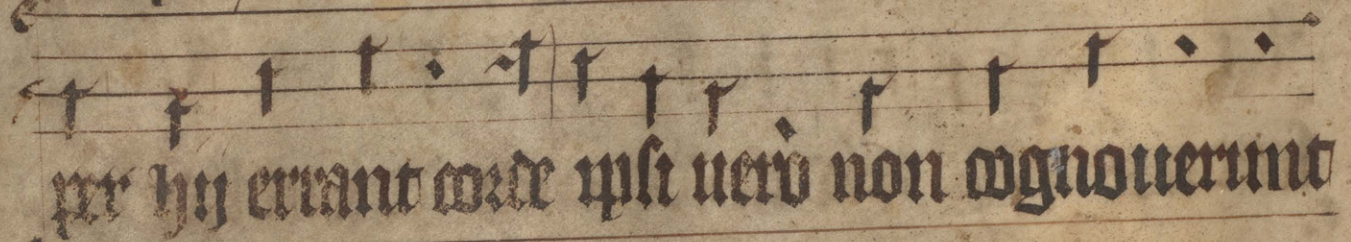 per hij errant corde ipsi uero non cognouerunt